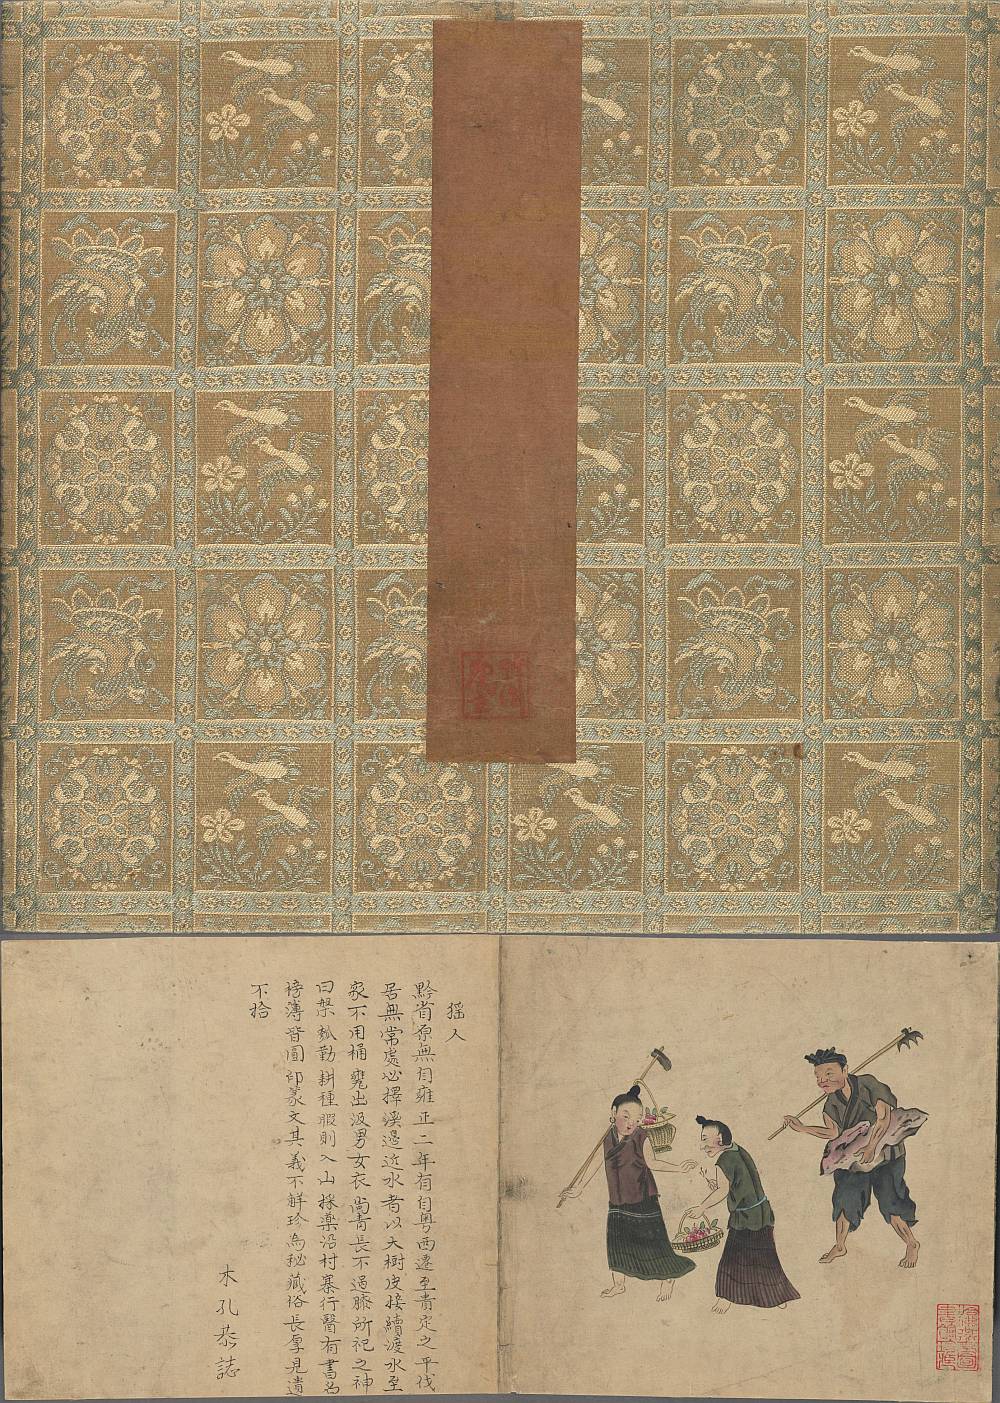 猺人
黔省原無自雍正二年有自粤西遷至貴定之平伐
居無常處必擇溪邊近水者以大樹皮接續渡水至
家不用桶甕出汲男女衣尚青長不過膝所祀之神
曰槃瓠勤耕種暇則入山採藥沿村寨行醫有書名
榜簿皆圓印篆文其義不觧珍為秘藏俗長厚見遺
不拾
木孔恭誌